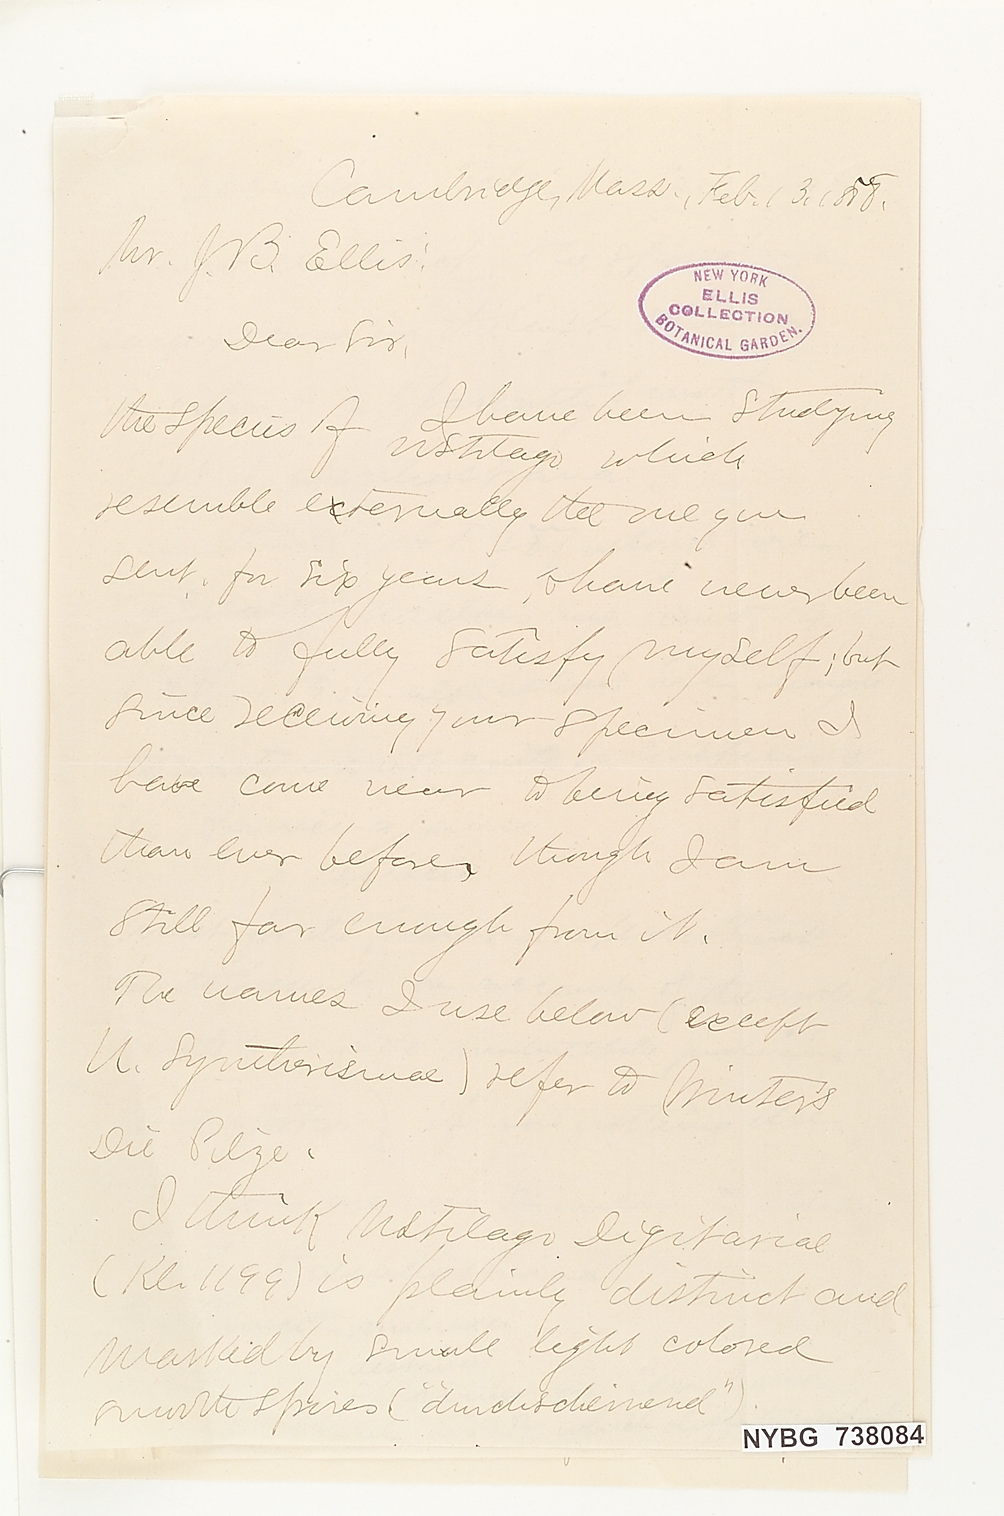 Cambridge, Mass., Feb. 13. 188
Mr. J. B. Ellis:
NEW YORK
ELLIS
COLLECTION
BOTANICAL GARDEN.
Dear Sir,
I have been studying
the species of Ustilago which
resemble externally the one you
sent, for six years, & have never been
able to fully satisfy myself; but
since receiving your specimen I
have come near to being satisfied
than ever before, though I am
still far enough from it.
The names I use below (except
U. Syntherismae) refer to Winter's
Die Pilze.
I think Ustilago Digitariae
(Kl. 1199) is plainly distinct and
marked by small light colored
smooth spores ("durchscheinend").
NYBG 738084